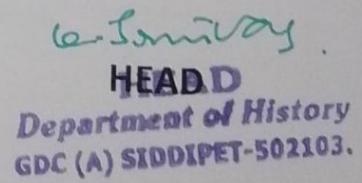 HEAD
Department of History
GDC (A) SIDDIPET-502103.